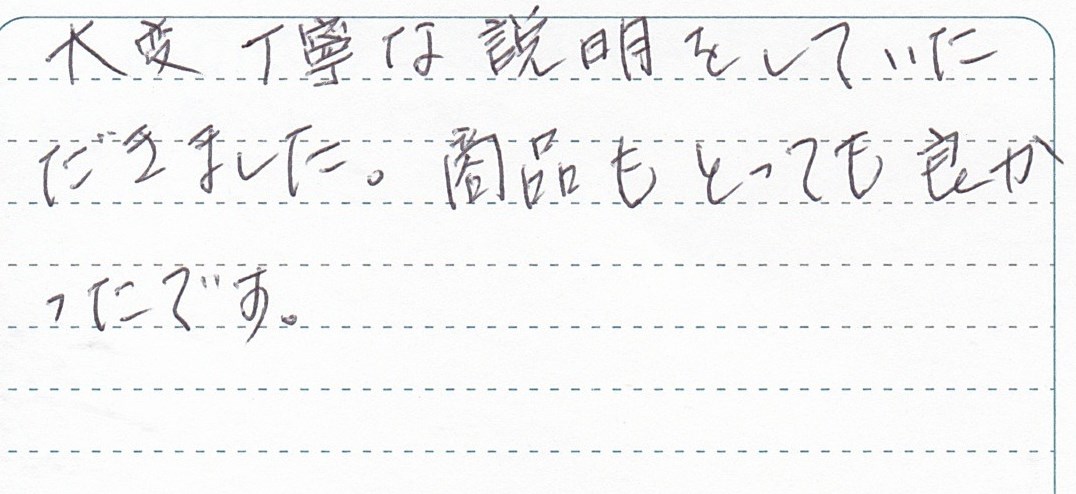 大変丁寧な説明をしていた
だきました。商品もとっても良か
ったです。